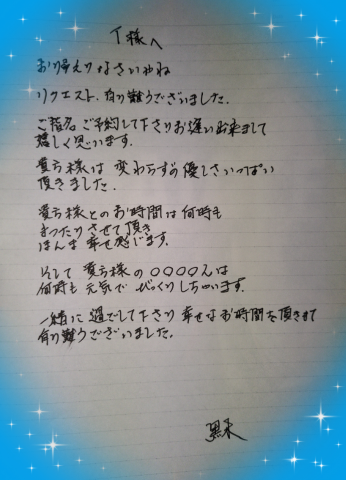 T様へ
お帰えりなさいませ
リクエスト、有り難うございました。
ご指名ご予約して下さりお逢い出来まして
嬉しく思います。
貴方様は変わらずの優しさいっぱい
頂きました。
貴方様とのお時間は何時も
まったりさせて頂き
ほんま幸せ感じます。
そして貴方様の〇〇〇〇さんは
何時も元気でびっくりしちゃいます。
一緒に過ごして下さり幸せなお時間を頂きまして
有り難うございました。
黒木